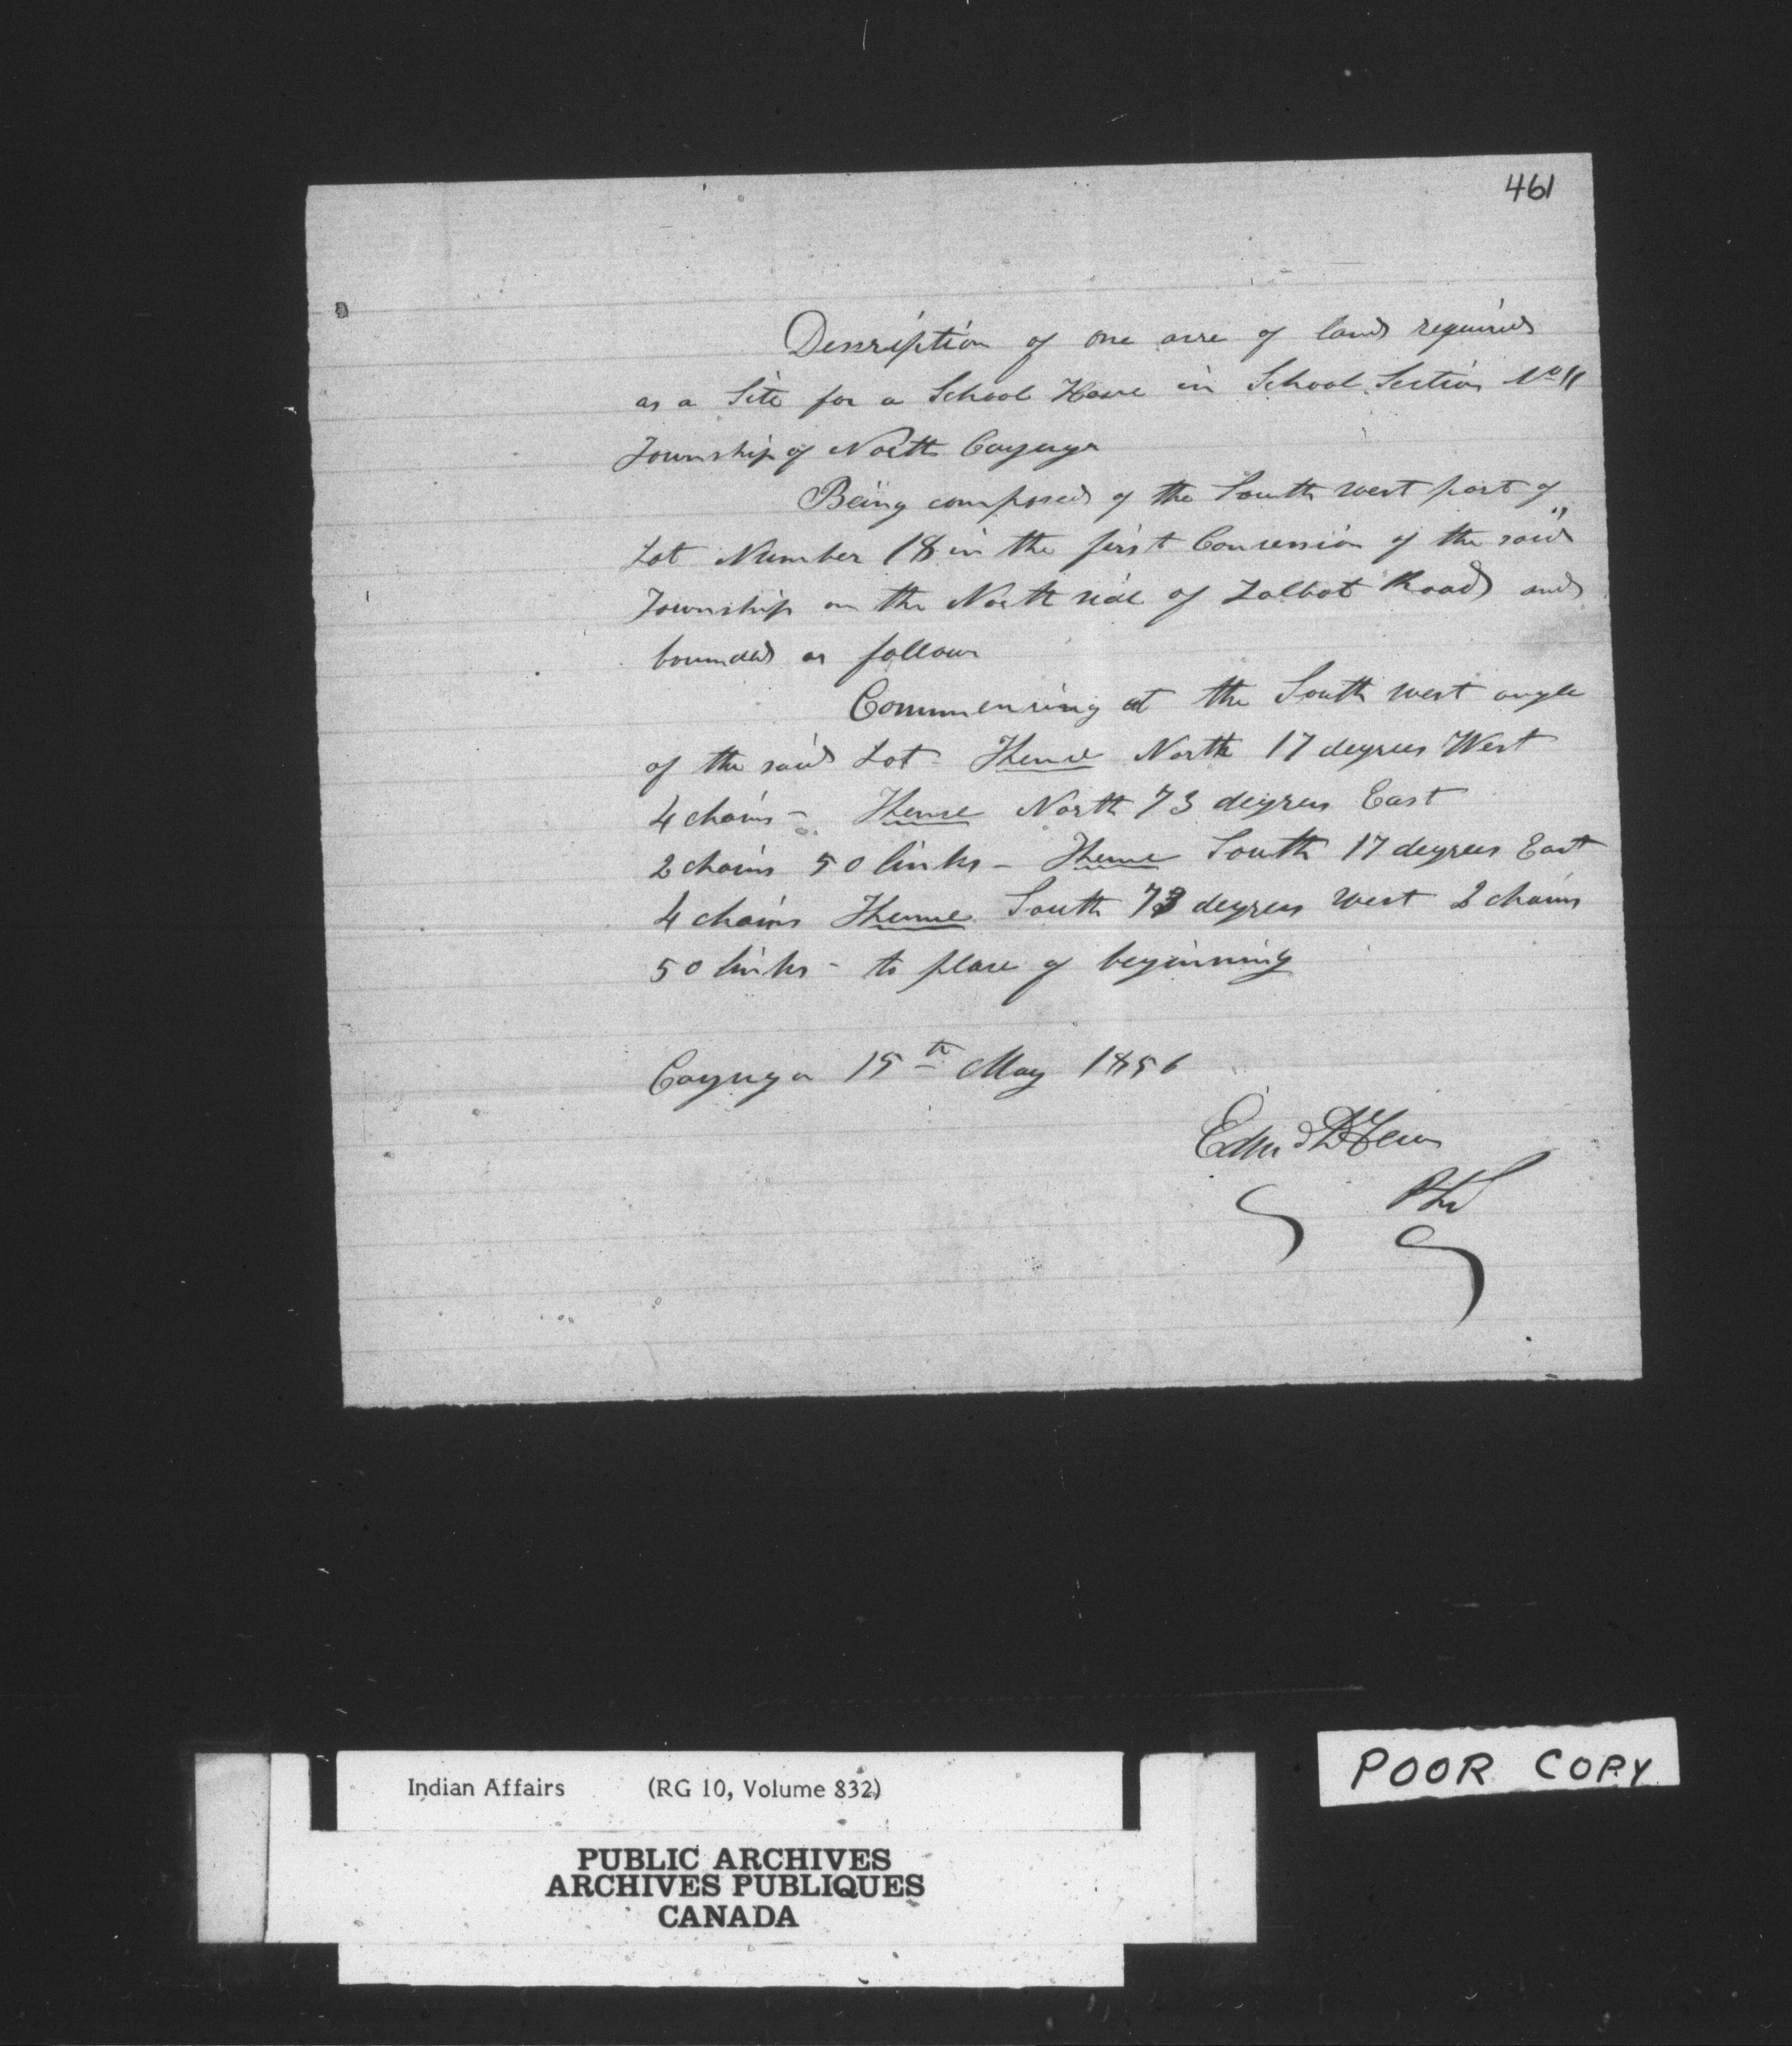 461
Description of one acre of land required
as a Site for a School House in School Section No 11
Township of North Cayuga
Being composed of the South west part of
Lot Number 18 in the first Concession of the said
Township on the North side of Talbot Road and
bounded as follows
Commencing at the South west angle
of the said Lot - Thence North 17 degrees West
4 chains - Thence North 73 degrees East
2 chains 50 links - Thence South 17 degrees East
4 chains Thence South 73 degrees West 2 chains
50 links - to place of beginning
Cayuga 15th May 1856
Edm d
PLS
Indian Affairs (RG 10, Volume 832)
POOR COPY
PUBLIC ARCHIVES
ARCHIVES PUBLIQUES
CANADA